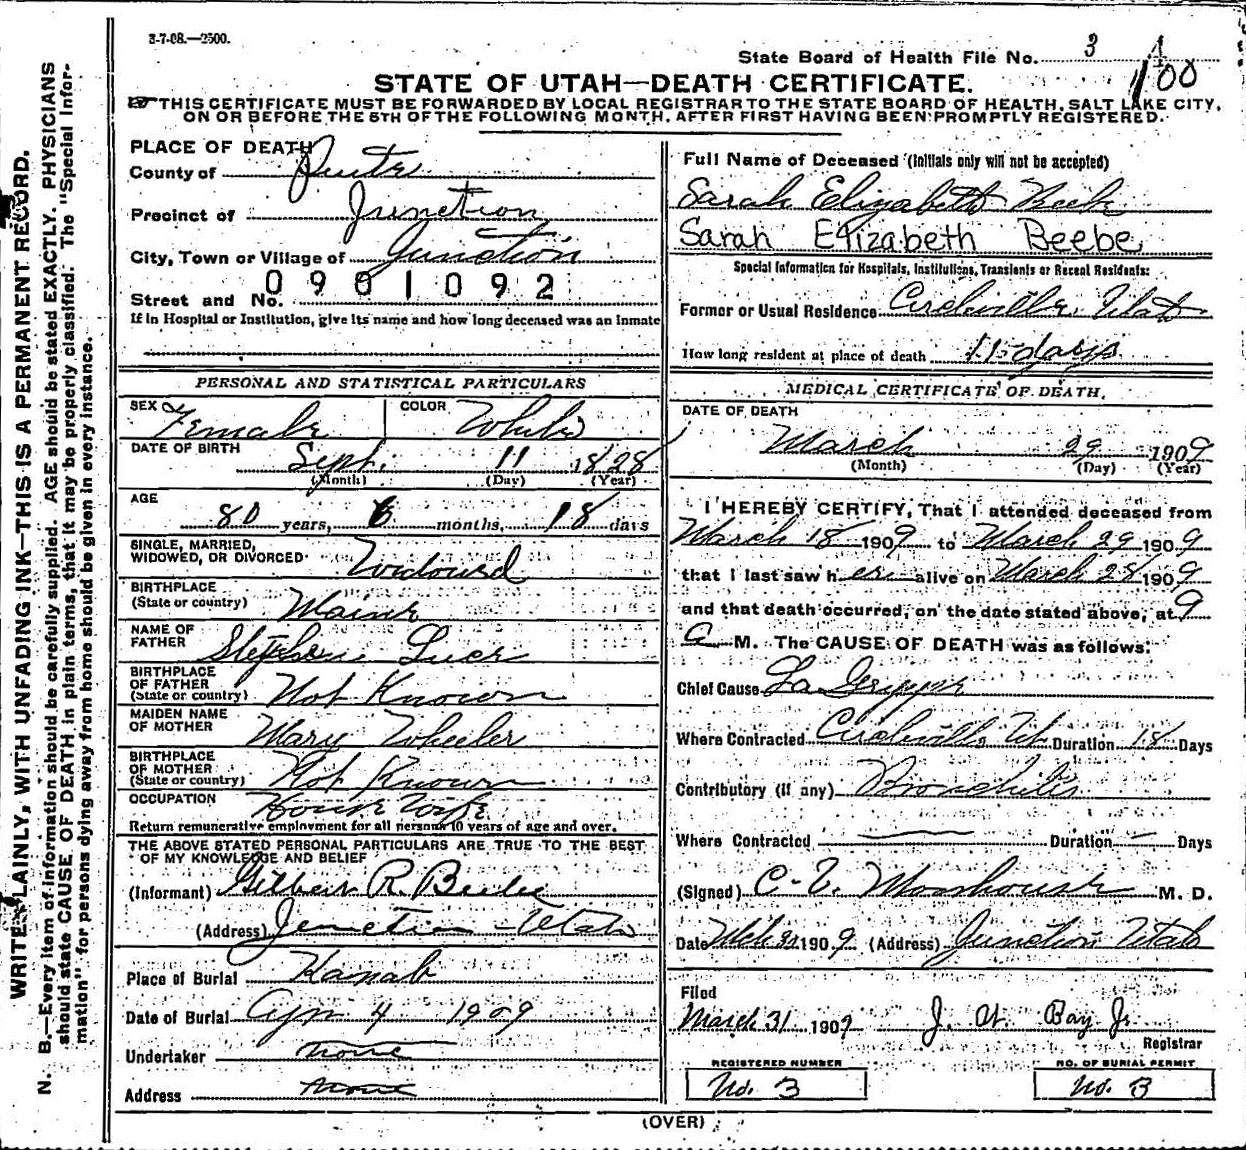 3-7-08.—2500.
State Board of Health File No. 3
100
STATE OF UTAH—DEATH CERTIFICATE.
THIS CERTIFICATE MUST BE FORWARDED BY LOCAL REGISTRAR TO THE STATE BOARD OF HEALTH, SALT LAKE CITY,
ON OR BEFORE THE 5TH OF THE FOLLOWING MONTH, AFTER FIRST HAVING BEEN PROMPTLY REGISTERED.
WRITE PLAINLY, WITH UNFADING INK—THIS IS A PERMANENT RECORD.
N. B.—Every item of information should be carefully supplied. AGE should be stated EXACTLY. PHYSICIANS
should state CAUSE OF DEATH in plain terms, that it may be properly classified. The "Special Infor-
mation" for persons dying away from home should be given in every instance.
PLACE OF DEATH
County of Piute
Precinct of Junction
City, Town or Village of Junction
0901092
Street and No.
If in Hospital or Institution, give its name and how long deceased was an inmate
PERSONAL AND STATISTICAL PARTICULARS
SEX Female COLOR White
DATE OF BIRTH
Sept. 11 1828
(Month) (Day) (Year)
AGE
80 years, 6 months, 18 days
SINGLE, MARRIED,
WIDOWED, OR DIVORCED Widowed
BIRTHPLACE
(State or country) Maine
NAME OF
FATHER Stephen Luce
BIRTHPLACE
OF FATHER
(State or country) Not Known
MAIDEN NAME
OF MOTHER Mary Wheeler
BIRTHPLACE
OF MOTHER
(State or country) Not Known
OCCUPATION House Wife
Return remunerative employment for all persons 10 years of age and over.
THE ABOVE STATED PERSONAL PARTICULARS ARE TRUE TO THE BEST
OF MY KNOWLEDGE AND BELIEF
(Informant) Gilbert R. Beebe
(Address) Junction Utah
Place of Burial Kanab
Date of Burial Apr 4 1909
Undertaker none
Address none
Full Name of Deceased (Initials only will not be accepted)
Sarah Elizabeth Beebe
Sarah Elizabeth Beebe
Special Information for Hospitals, Institutions, Transients or Recent Residents:
Former or Usual Residence Circleville, Utah
How long resident at place of death 15 days
MEDICAL CERTIFICATE OF DEATH.
DATE OF DEATH
March 29 1909
(Month) (Day) (Year)
I HEREBY CERTIFY, That I attended deceased from
March 18 1909 to March 29 1909
that I last saw her alive on March 28 1909
and that death occurred, on the date stated above, at 9
A M. The CAUSE OF DEATH was as follows:
Chief Cause La Grippe
Where Contracted Circleville Ut Duration 18 Days
Contributory (if any) Bronchitis
Where Contracted Duration Days
(Signed) C. V. M. D.
Date Mch 31 1909 (Address) Junction Utah
Filed
March 31 1909 J. W. Bay Jr.
Registrar
REGISTERED NUMBER
No. 3
NO. OF BURIAL PERMIT
No. 3
(OVER)